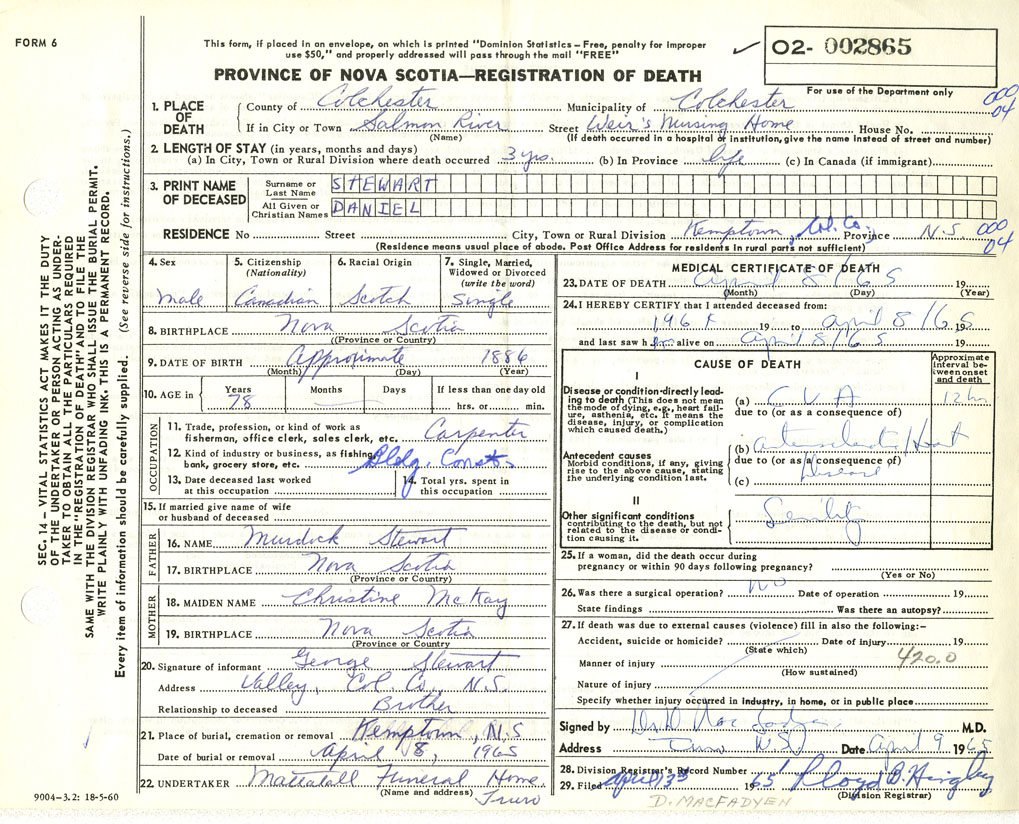 FORM 6
This form, if placed in an envelope, on which is printed "Dominion Statistics – Free, penalty for improper
use $50," and properly addressed will pass through the mail "FREE"
02- 002865
For use of the Department only
PROVINCE OF NOVA SCOTIA—REGISTRATION OF DEATH
000
04
1. PLACE OF DEATH
County of Colchester Municipality of Colchester
If in City or Town Salmon River Street Weir's Nursing Home House No.
(Name) (If death occurred in a hospital or institution, give the name instead of street and number)
2. LENGTH OF STAY (in years, months and days)
(a) In City, Town or Rural Division where death occurred 3 yrs. (b) In Province life (c) In Canada (if immigrant)
3. PRINT NAME OF DECEASED
Surname or Last Name STEWART
All Given or Christian Names DANIEL
RESIDENCE No Street City, Town or Rural Division Kemptown, Col. Co. Province N.S.
000
04
(Residence means usual place of abode. Post Office Address for residents in rural parts not sufficient)
4. Sex
male
5. Citizenship
(Nationality)
Canadian
6. Racial Origin
Scotch
7. Single, Married,
Widowed or Divorced
(write the word)
Single
8. BIRTHPLACE Nova Scotia
(Province or Country)
9. DATE OF BIRTH Approximate 1886
(Month) (Day) (Year)
10. AGE in
Years
78
Months
Days
If less than one day old
hrs. or min.
OCCUPATION
11. Trade, profession, or kind of work as
fisherman, office clerk, sales clerk, etc. Carpenter
12. Kind of industry or business, as fishing,
bank, grocery store, etc. Bldg. Const.
13. Date deceased last worked
at this occupation
14. Total yrs. spent in
this occupation
15. If married give name of wife
or husband of deceased
FATHER
16. NAME Murdock Stewart
17. BIRTHPLACE Nova Scotia
(Province or Country)
MOTHER
18. MAIDEN NAME Christine McKay
19. BIRTHPLACE Nova Scotia
(Province or Country)
20. Signature of informant George Stewart
Address Valley, Col. Co. N.S.
Relationship to deceased Brother
21. Place of burial, cremation or removal Kemptown, N.S
Date of burial or removal April 8, 1965
22. UNDERTAKER Mattatall Funeral Home,
(Name and address) Truro
MEDICAL CERTIFICATE OF DEATH
23. DATE OF DEATH April 8/65 19
(Month) (Day) (Year)
24. I HEREBY CERTIFY that I attended deceased from:
196 19 to April 8/65 19
and last saw h alive on April 8/65 19
CAUSE OF DEATH
Approximate
interval be-
tween onset
and death
I
Disease or condition directly lead-
ing to death (This does not mean
the mode of dying, e.g., heart fail-
ure, asthenia, etc. It means the
disease, injury, or complication
which caused death.)
(a) C V A 12 hr
due to (or as a consequence of)
Antecedent causes
Morbid conditions, if any, giving
rise to the above cause, stating
the underlying condition last.
(b) Heart
due to (or as a consequence of)
Disease
(c)
II
Other significant conditions
contributing to the death, but not
related to the disease or condi-
tion causing it.
Senility
25. If a woman, did the death occur during
pregnancy or within 90 days following pregnancy?
(Yes or No)
26. Was there a surgical operation? No Date of operation 19
State findings Was there an autopsy?
27. If death was due to external causes (violence) fill in also the following:–
Accident, suicide or homicide? Date of injury 19
(State which)
420.0
Manner of injury
(How sustained)
Nature of injury
Specify whether injury occurred in industry, in home, or in public place
Signed by M.D.
Address Truro NS Date April 9 1965
28. Division Registrar's Record Number
29. Filed April 13th 1965 Lloyd B. Hingley
(Division Registrar)
D. MACFADYEN
9004–3.2: 18-5-60
SEC. 14 – VITAL STATISTICS ACT MAKES IT THE DUTY
OF THE UNDERTAKER OR PERSON ACTING AS UNDER-
TAKER TO OBTAIN ALL THE PARTICULARS REQUIRED
IN THE "REGISTRATION OF DEATH" AND TO FILE THE
SAME WITH THE DIVISION REGISTRAR WHO SHALL ISSUE THE BURIAL PERMIT.
WRITE PLAINLY WITH UNFADING INK. THIS IS A PERMANENT RECORD.
Every item of information should be carefully supplied. (See reverse side for instructions.)